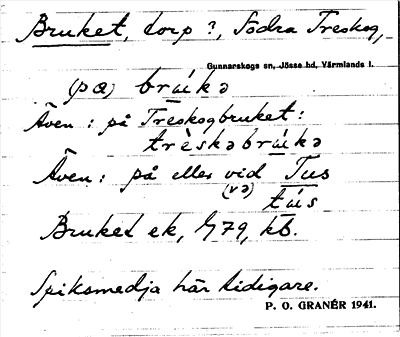 Bruket, torp ?, Södra Treskog,
Gunnarskogs sn, Jösse hd, Värmlands l.
(pɑ) brúkə
Även : på Treskogbruket :
trèskəbrúkə
Även : på eller vid Tus
(və) tús
Bruket ek, 1/79, kb.
Spiksmedja här tidigare.
P. O. GRANÉR 1941.